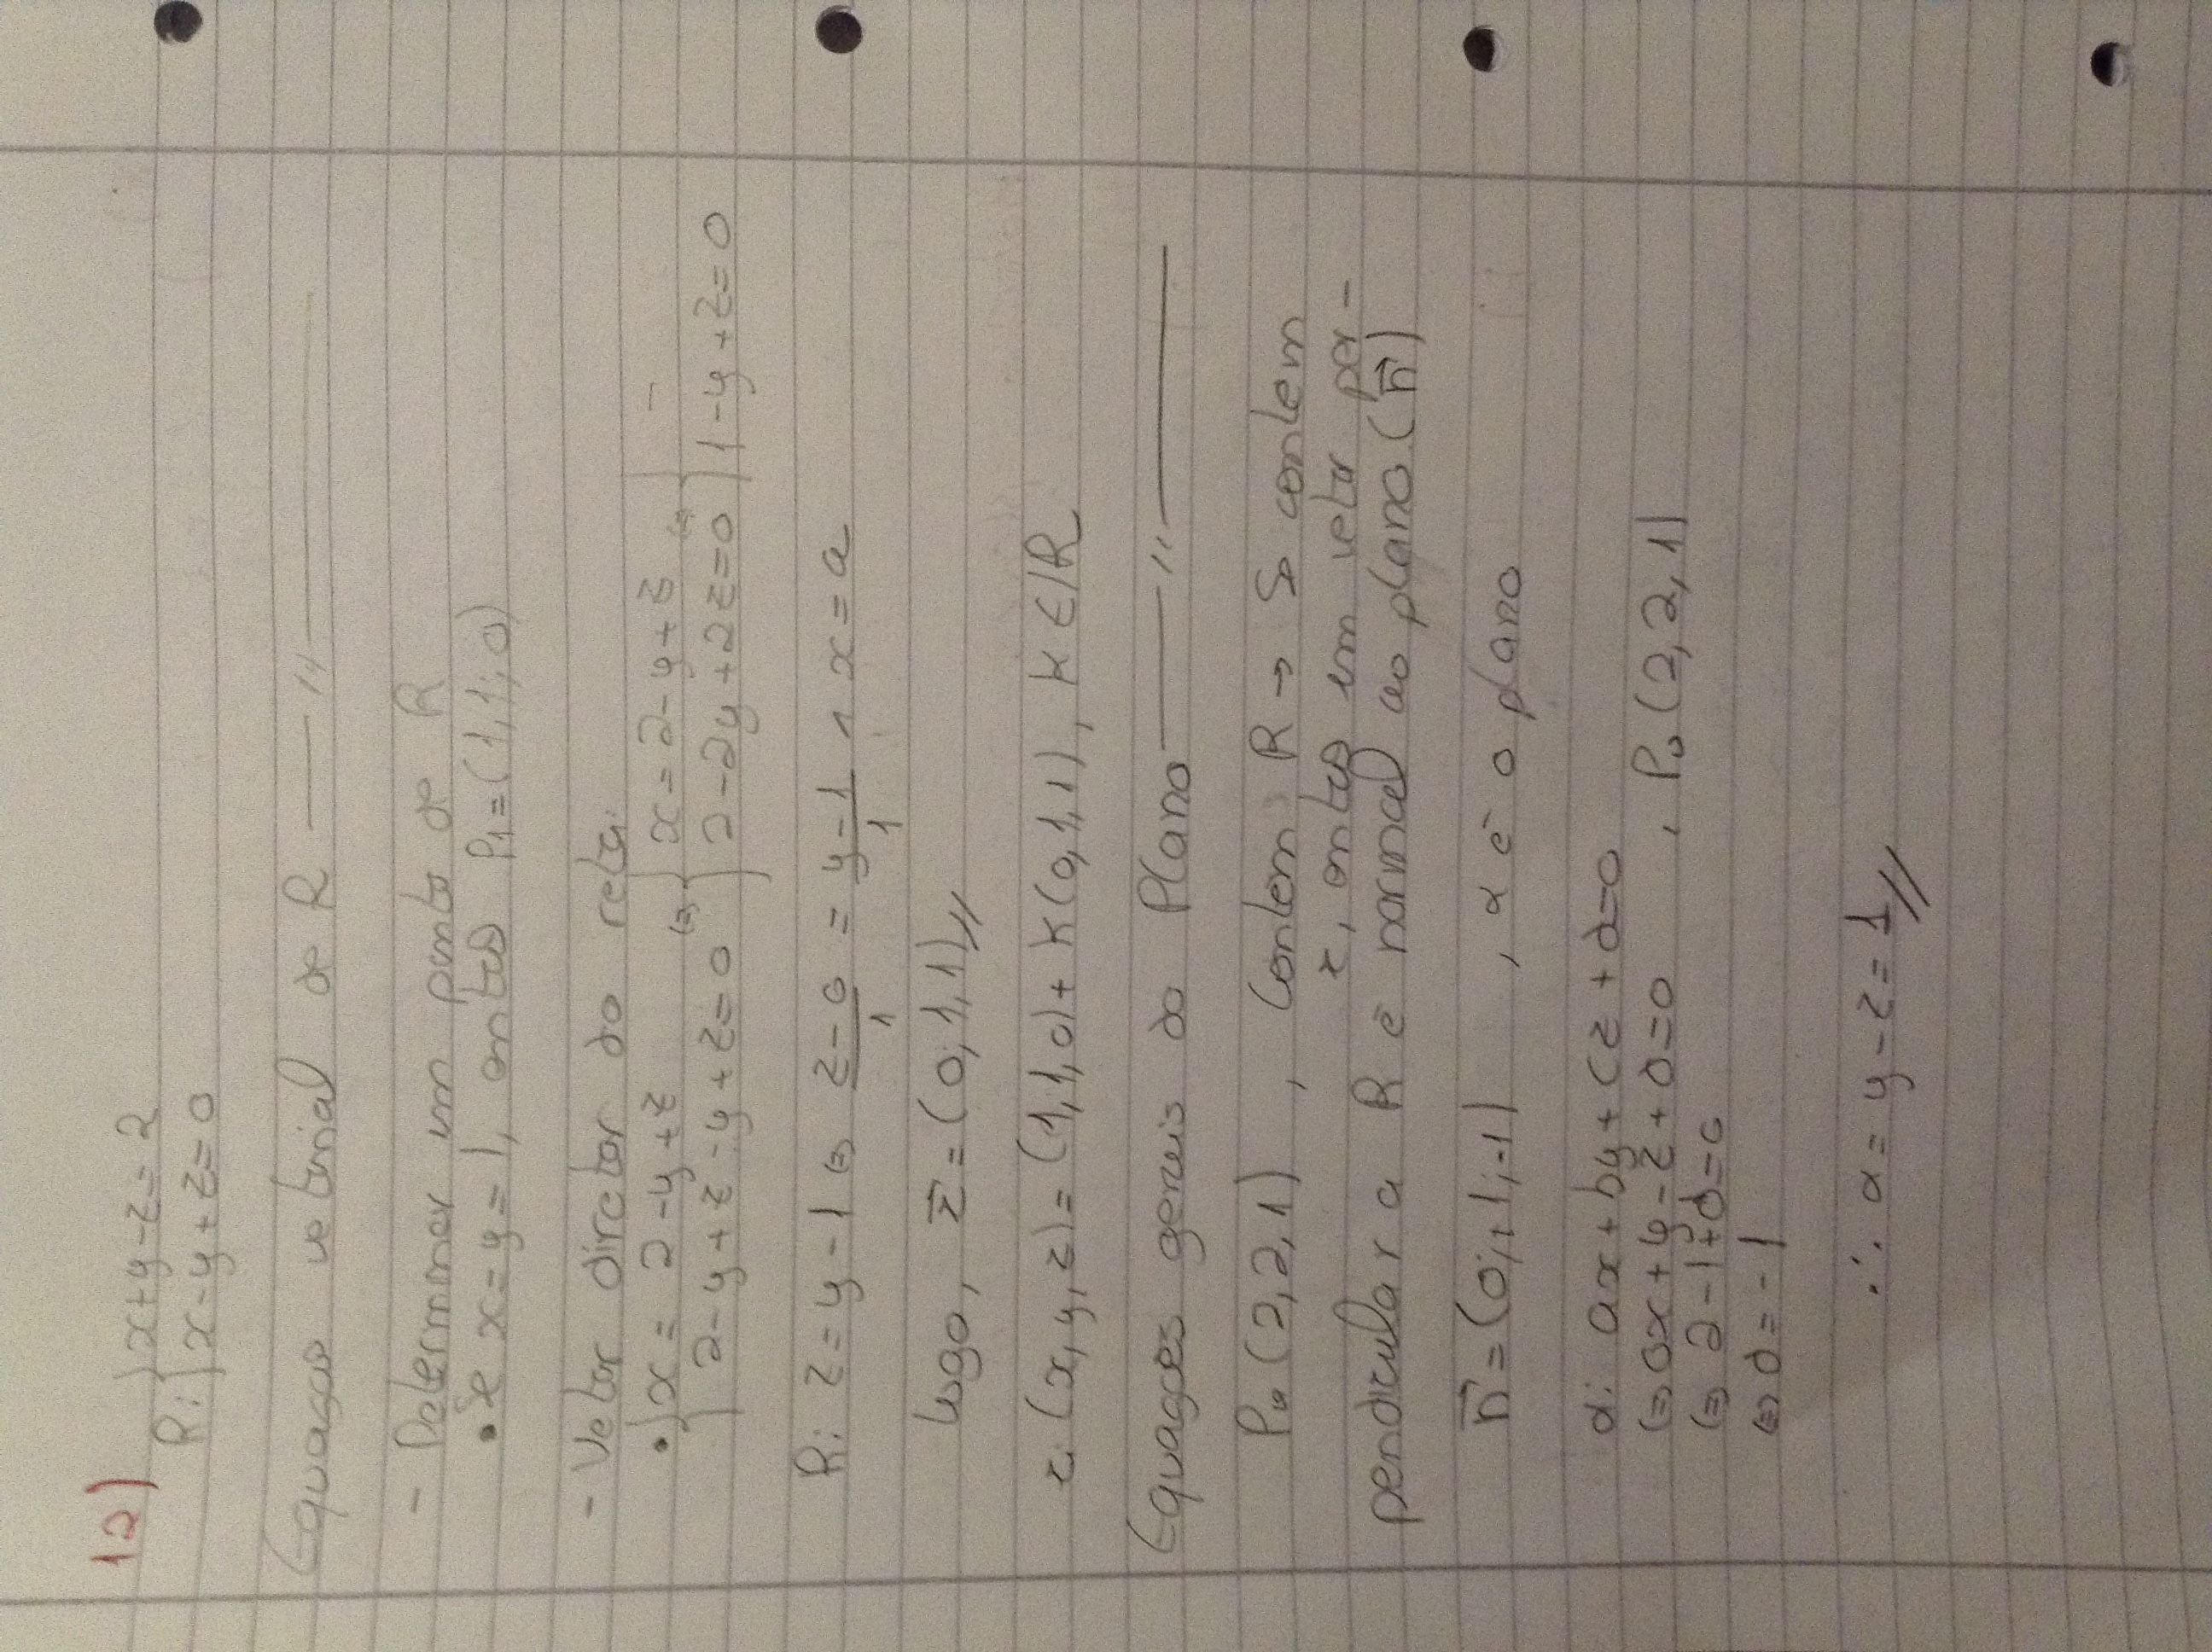 12)
R: { x+y-z=2
x-y+z=0
Equaçao vetorial de R —— // ——
- Determinar um ponto de R
• Se x=y=1, então P1=(1,1,0)
- Vetor diretor da reta:
• { x = 2-y+z (=) { x=2-y+z (=) { -
2-y+z-y+z=0 2-2y+2z=0 1-y+z=0
R: z=y-1 (=) z-0/1 = y-1/1 ∧ x=a
logo, r⃗=(0,1,1)//
r: (x,y,z)=(1,1,0)+K(0,1,1), K∈IR
Equações gerais do Plano —— // ——
P0(2,2,1) , Contem R → Se contem
r, então um vetor per-
pendicular a R é normal ao plano (n⃗)
n⃗=(0,+1,-1) , α é o plano
α: ax+by+cz+d=0
(=) 0x+y-z+d=0 , P0(2,2,1)
(=) 2-1+d=0
(=) d=-1
∴ α= y-z=1//